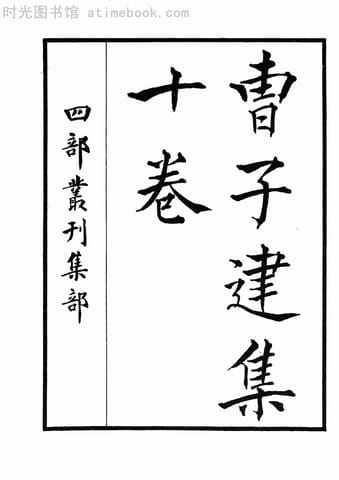 时光图书馆 atimebook.com
曹子建集
十卷
四部叢刊集部